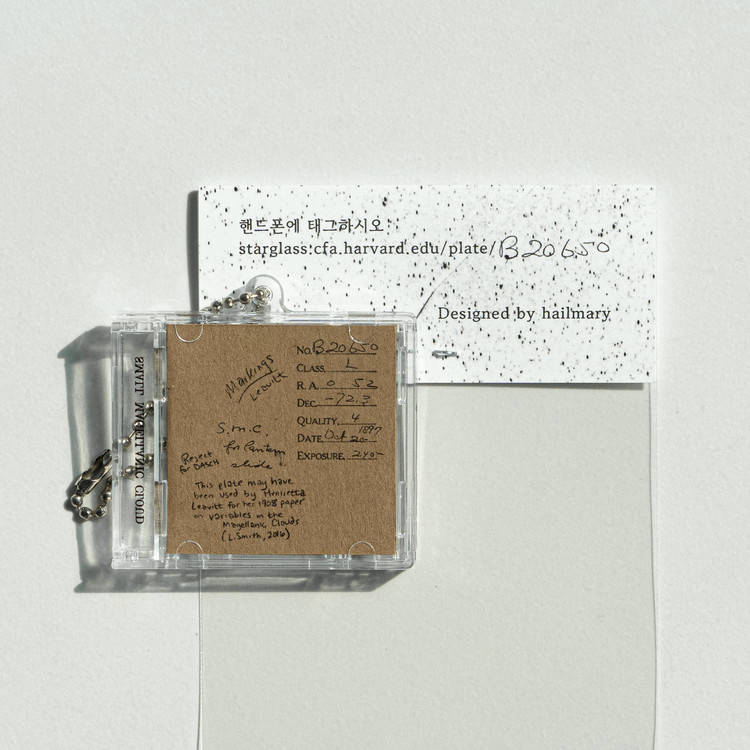 핸드폰에 태그하시오:
starglass.cfa.harvard.edu/plate/B20650
Designed by hailmary
SMALL MAGELLANIC CLOUD
Markings
Leavitt
No. B20650
CLASS L
R. A. 0 52
DEC. -72.3
QUALITY, 4
DATE, Oct 20 1897
EXPOSURE, 240s
S.M.C.
for Lantern
slide
Reject
for DASCH
This plate may have
been used by Henrietta
Leavitt for her 1908 paper
on variables in the
Magellanic Clouds
(L. Smith, 2016)